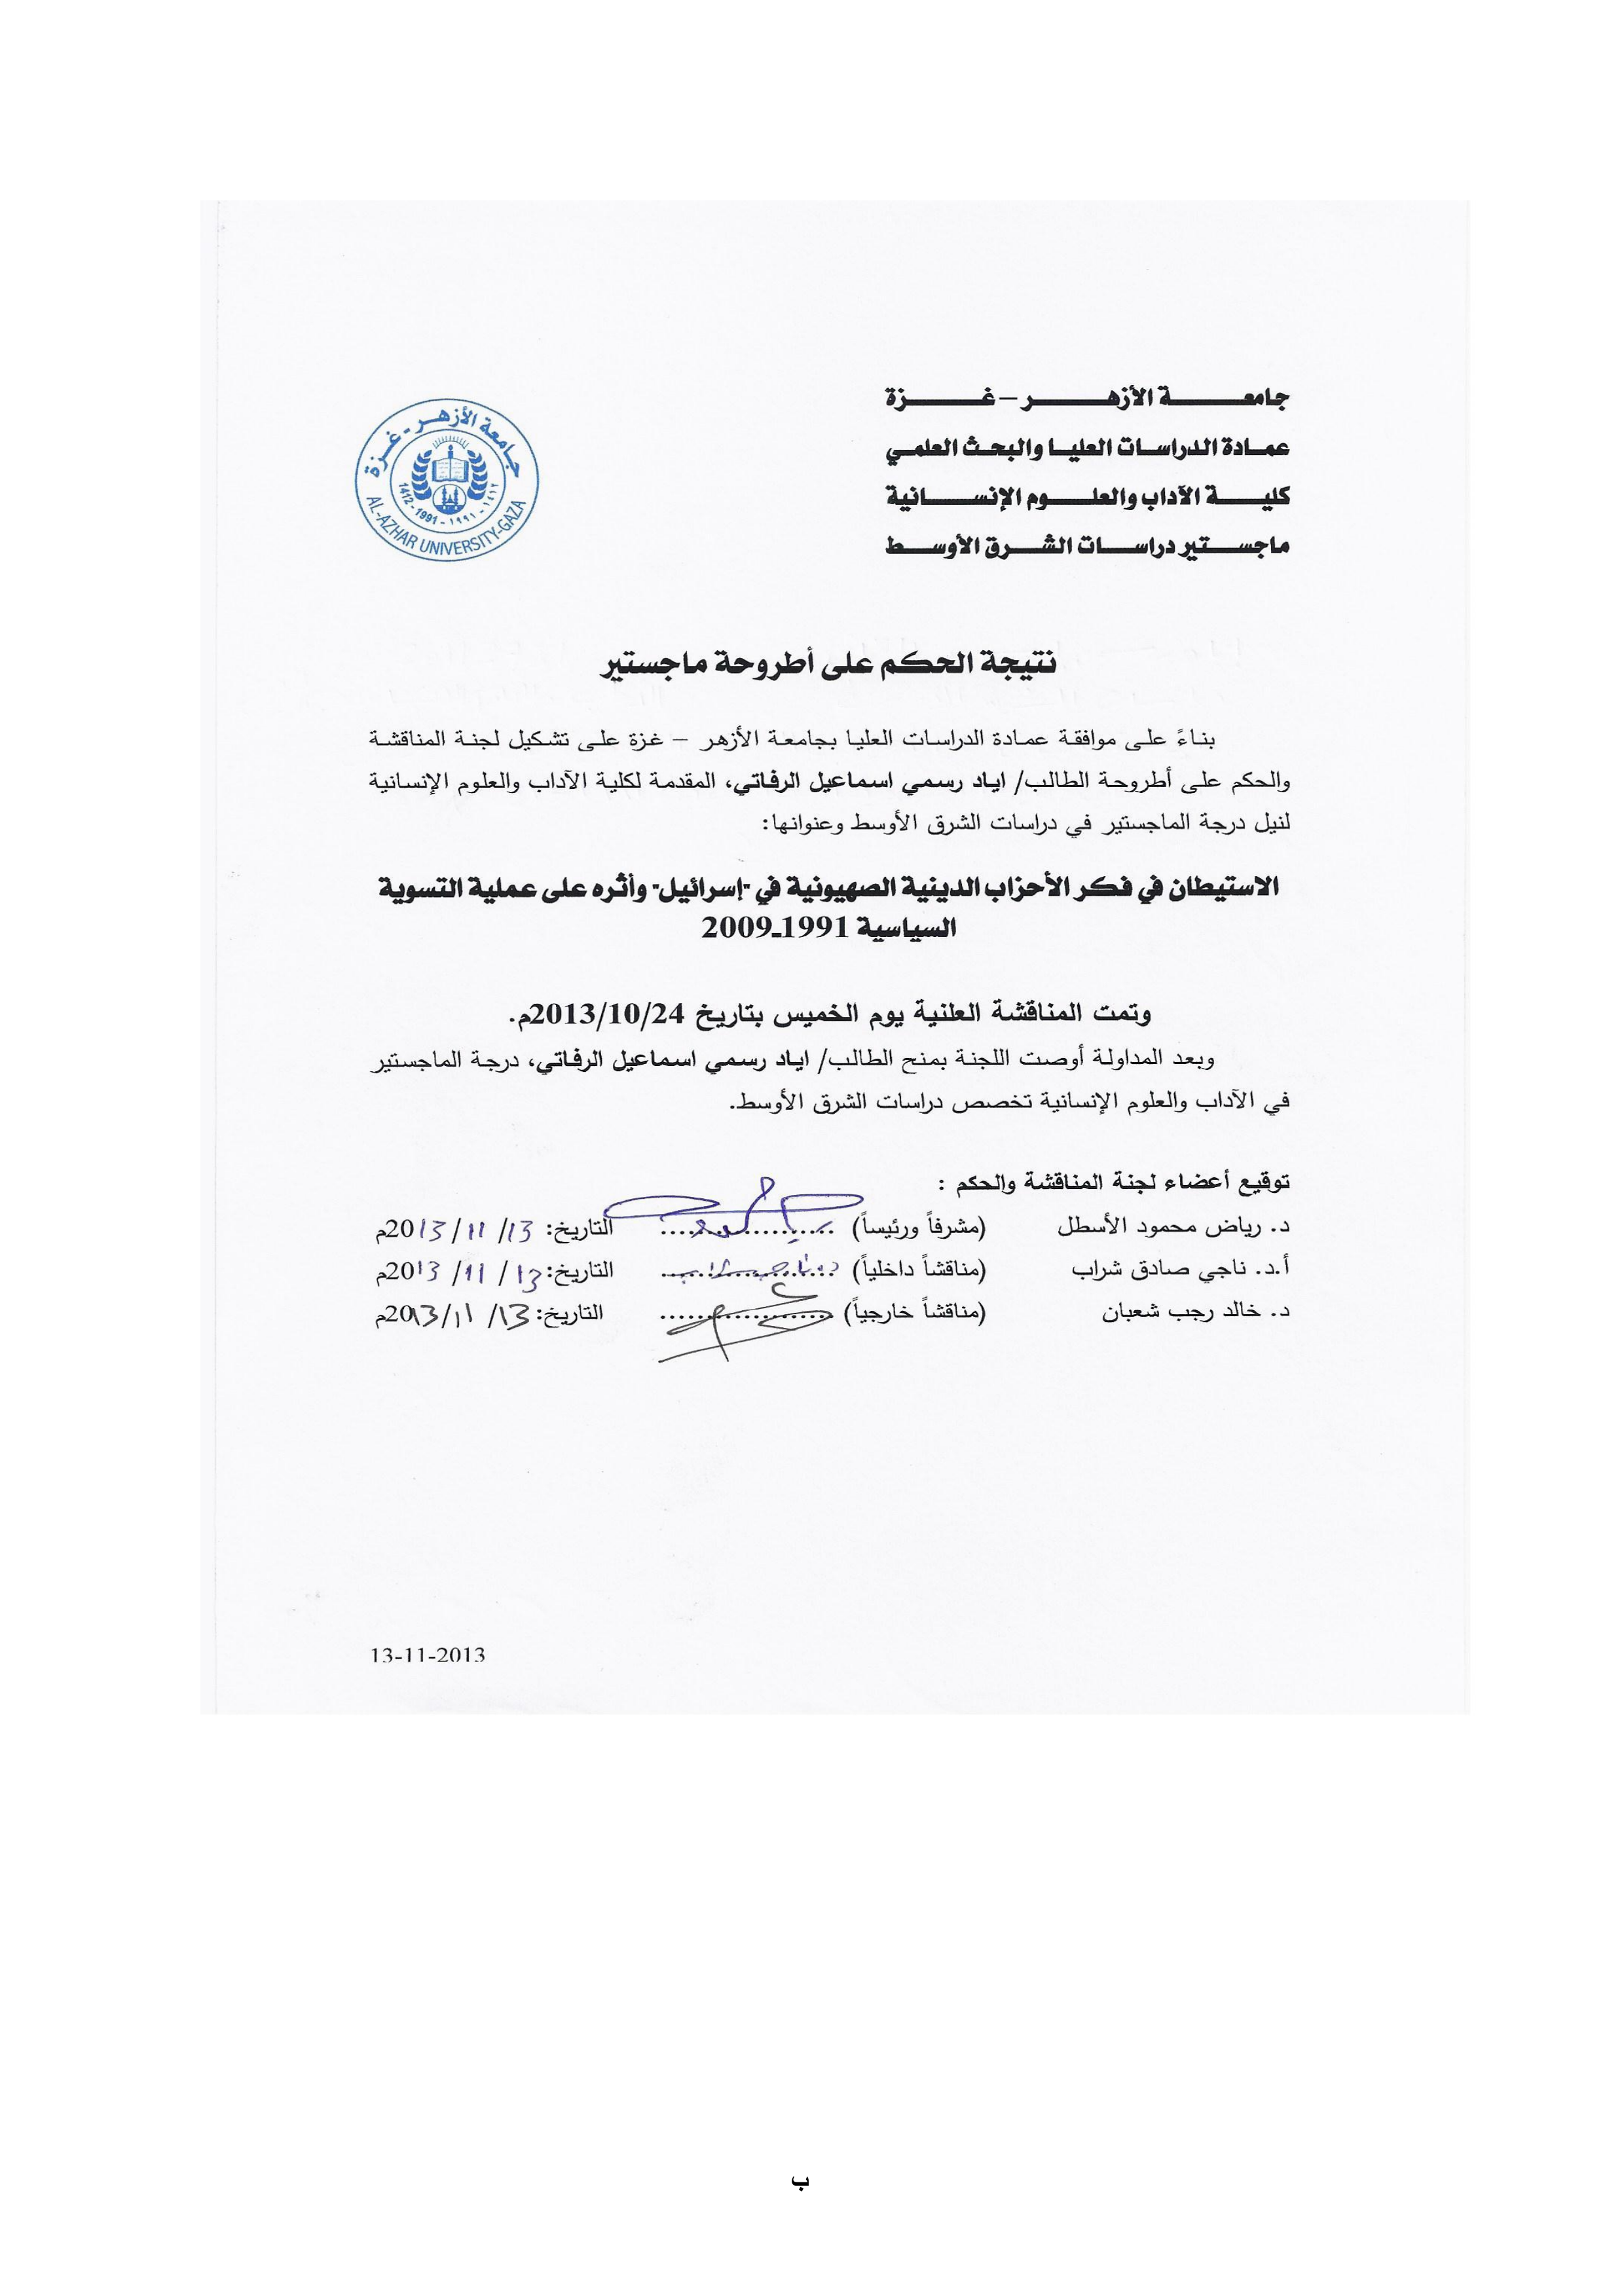 جامعة الأزهر – غزة
عمادة الدراسات العليا والبحث العلمي
كلية الآداب والعلوم الإنسانية
ماجستير دراسات الشرق الأوسط
جامعة الأزهر - غزة
1412 - 1991 - ١٩٩١ - ١٤١٢
AL-AZHAR UNIVERSITY-GAZA
نتيجة الحكم على أطروحة ماجستير
بناءً على موافقة عمادة الدراسات العليا بجامعة الأزهر – غزة على تشكيل لجنة المناقشة
والحكم على أطروحة الطالب/ اياد رسمي اسماعيل الرفاتي، المقدمة لكلية الآداب والعلوم الإنسانية
لنيل درجة الماجستير في دراسات الشرق الأوسط وعنوانها:
الاستيطان في فكر الأحزاب الدينية الصهيونية في "إسرائيل" وأثره على عملية التسوية
السياسية 1991-2009
وتمت المناقشة العلنية يوم الخميس بتاريخ 2013/10/24م.
وبعد المداولة أوصت اللجنة بمنح الطالب/ اياد رسمي اسماعيل الرفاتي، درجة الماجستير
في الآداب والعلوم الإنسانية تخصص دراسات الشرق الأوسط.
توقيع أعضاء لجنة المناقشة والحكم :
د. رياض محمود الأسطل (مشرفاً ورئيساً) .................... التاريخ: 13/ 11/ 2013م
أ.د. ناجي صادق شراب (مناقشاً داخلياً) .................... التاريخ: 13/ 11/ 2013م
د. خالد رجب شعبان (مناقشاً خارجياً) .................... التاريخ: 13/ 11/ 2013م
13-11-2013
ب